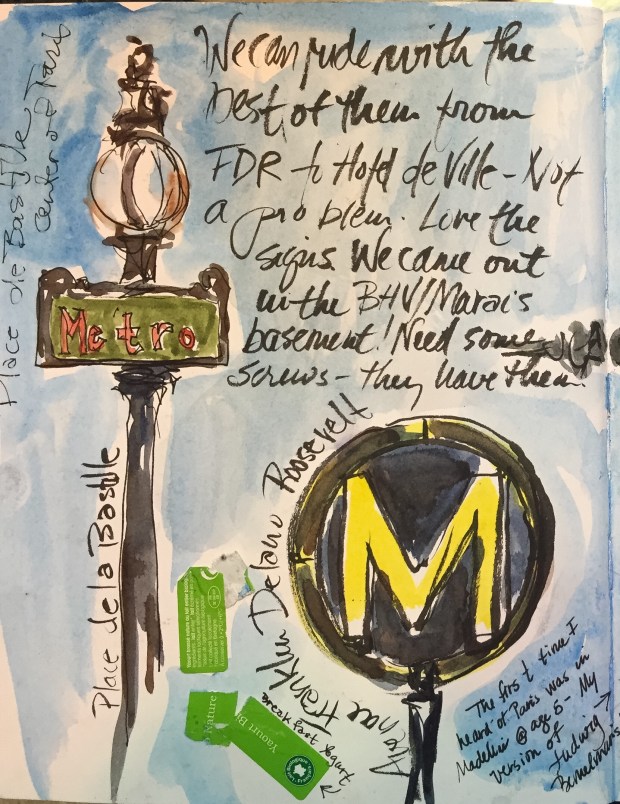 We can ride with the
best of them from
FDR to Hotel de Ville - Not
a problem. Love the
signs. We came out
in the BHV/Marais
basement! Need some
screws - they have them.
Place de Bastille
Center of Paris
Metro
Place de la Bastille
Avenue Franklin Delano Roosevelt
M
Nature
Yaourt B
Breakfast Yogurt
The first time I
heard of Paris was in
Madeline @ age 5 - My
version of
Ludwig
Bemelmans